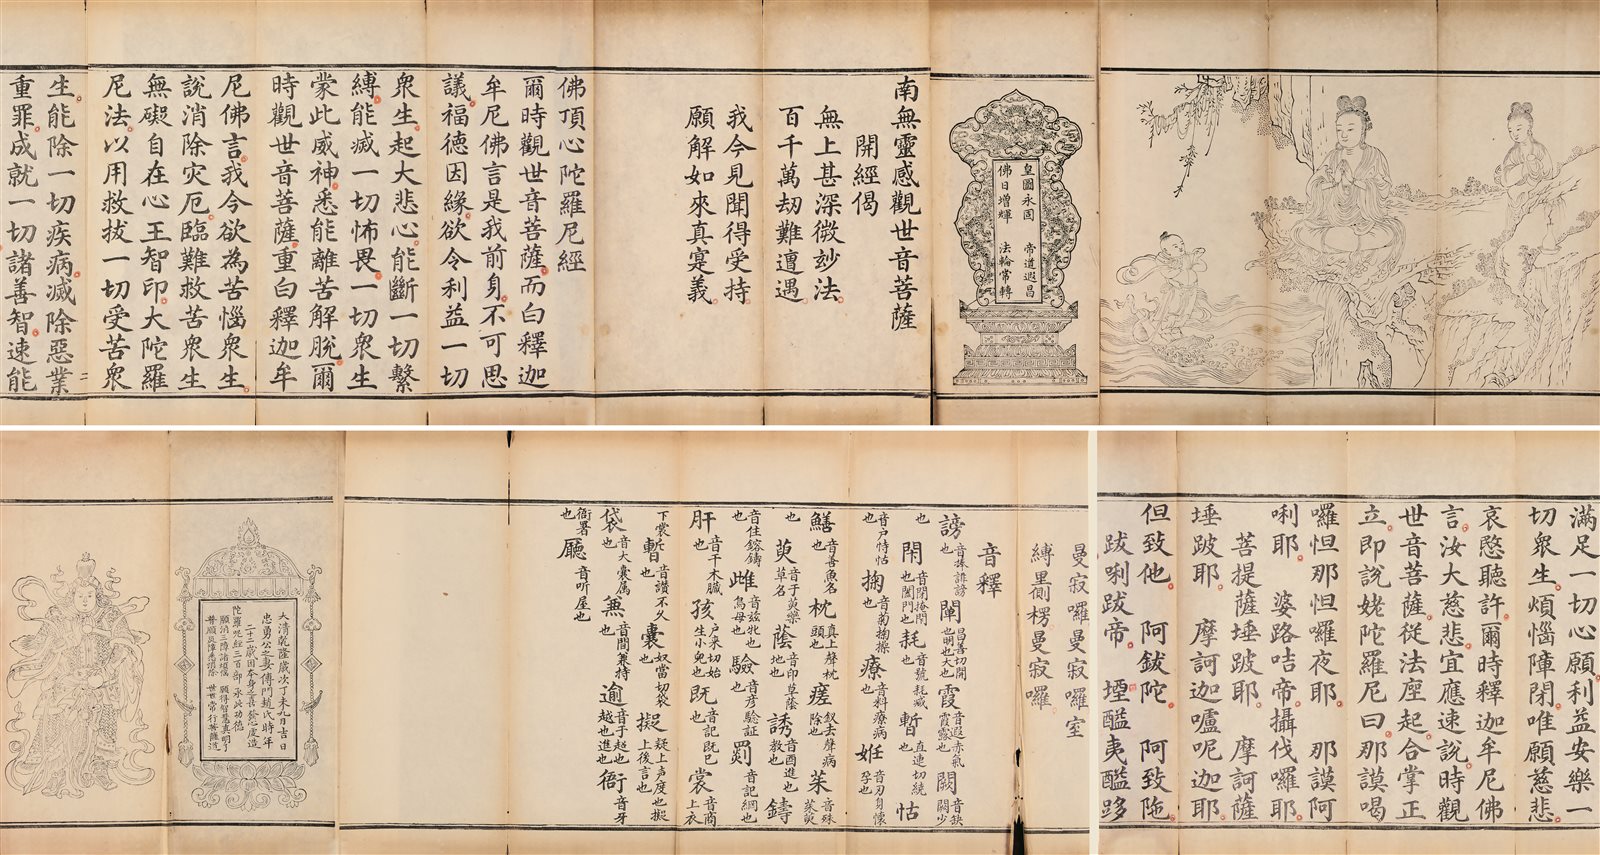 皇圖永固 帝道遐昌
佛日增輝 法輪常轉
南無靈感觀世音菩薩
開經偈
無上甚深微妙法
百千萬劫難遭遇
我今見聞得受持
願解如來真寔義
佛頂心陀羅尼經
爾時觀世音菩薩而白釋迦
牟尼佛言是我前身不可思
議福德因緣欲令利益一切
衆生起大悲心能斷一切繫
縛能滅一切怖畏一切衆生
蒙此威神悉能離苦解脫爾
時觀世音菩薩重白釋迦牟
尼佛言我今欲為苦惱衆生
說消除灾厄臨難救苦衆生
無礙自在心王智印大陀羅
尼法以用救拔一切受苦衆
生能除一切疾病滅除惡業
重罪成就一切諸善智速能
滿足一切心願利益安樂一
切衆生煩惱障閉唯願慈悲
哀愍聽許爾時釋迦牟尼佛
言汝大慈悲宜應速說時觀
世音菩薩從法座起合掌正
立即說姥陀羅尼曰那謨喝
囉怛那怛囉夜耶 那謨阿
唎耶 婆路咭帝攝伐囉耶
菩提薩埵跛耶 摩訶薩
埵跛耶 摩訶迦嚧呢迦耶
但致他 阿鈸陀 阿致陁
跋唎跋帝 堙醯夷醯跢
曼寂囉曼寂囉室
縛黑側楞曼寂囉
音釋
謗 音搒誹謗也 闡 昌善切開也明也大也 霞 音遐赤氣霞露也 闕 音缺闕少
也 耗 音號耗減也 怙
音户恃怙也 掬 音菊掬捺也 療 音料療病也 姙 音刃身懷孕也
鱔 音善魚名也 枕 真上聲枕頭也 瘥 釵去聲病除也 茱 音殊茱萸
也 萸 音于萸樂草名 蔭 音印草蔭地也 誘 音酉進也教也 鑄
音住鎔鑄也 雌 音玆牝也鳥母也 驗 音彥驗証也 罰
肝 音干木臟也 孩 户来切始生小兒也 既 音記既已也 裳 音商上衣
下裳也 暫 音讃不久也 囊 奴當切袋也 擬 疑上声度也擬上後言也
袋 音大囊属也 兼 音間兼持也 逾 音于超也越也進也 衙 音牙
衙署也 廳 音听屋也
大清乾隆歲次丁未九月吉日
忠勇公之妻傅門趙氏時年
二十二歲因本身善發心虔造
陀羅呢經三百部 承此功德
願消三障諸煩惱 願得智慧真明了
普願災障悉消除 世世常行菩薩道